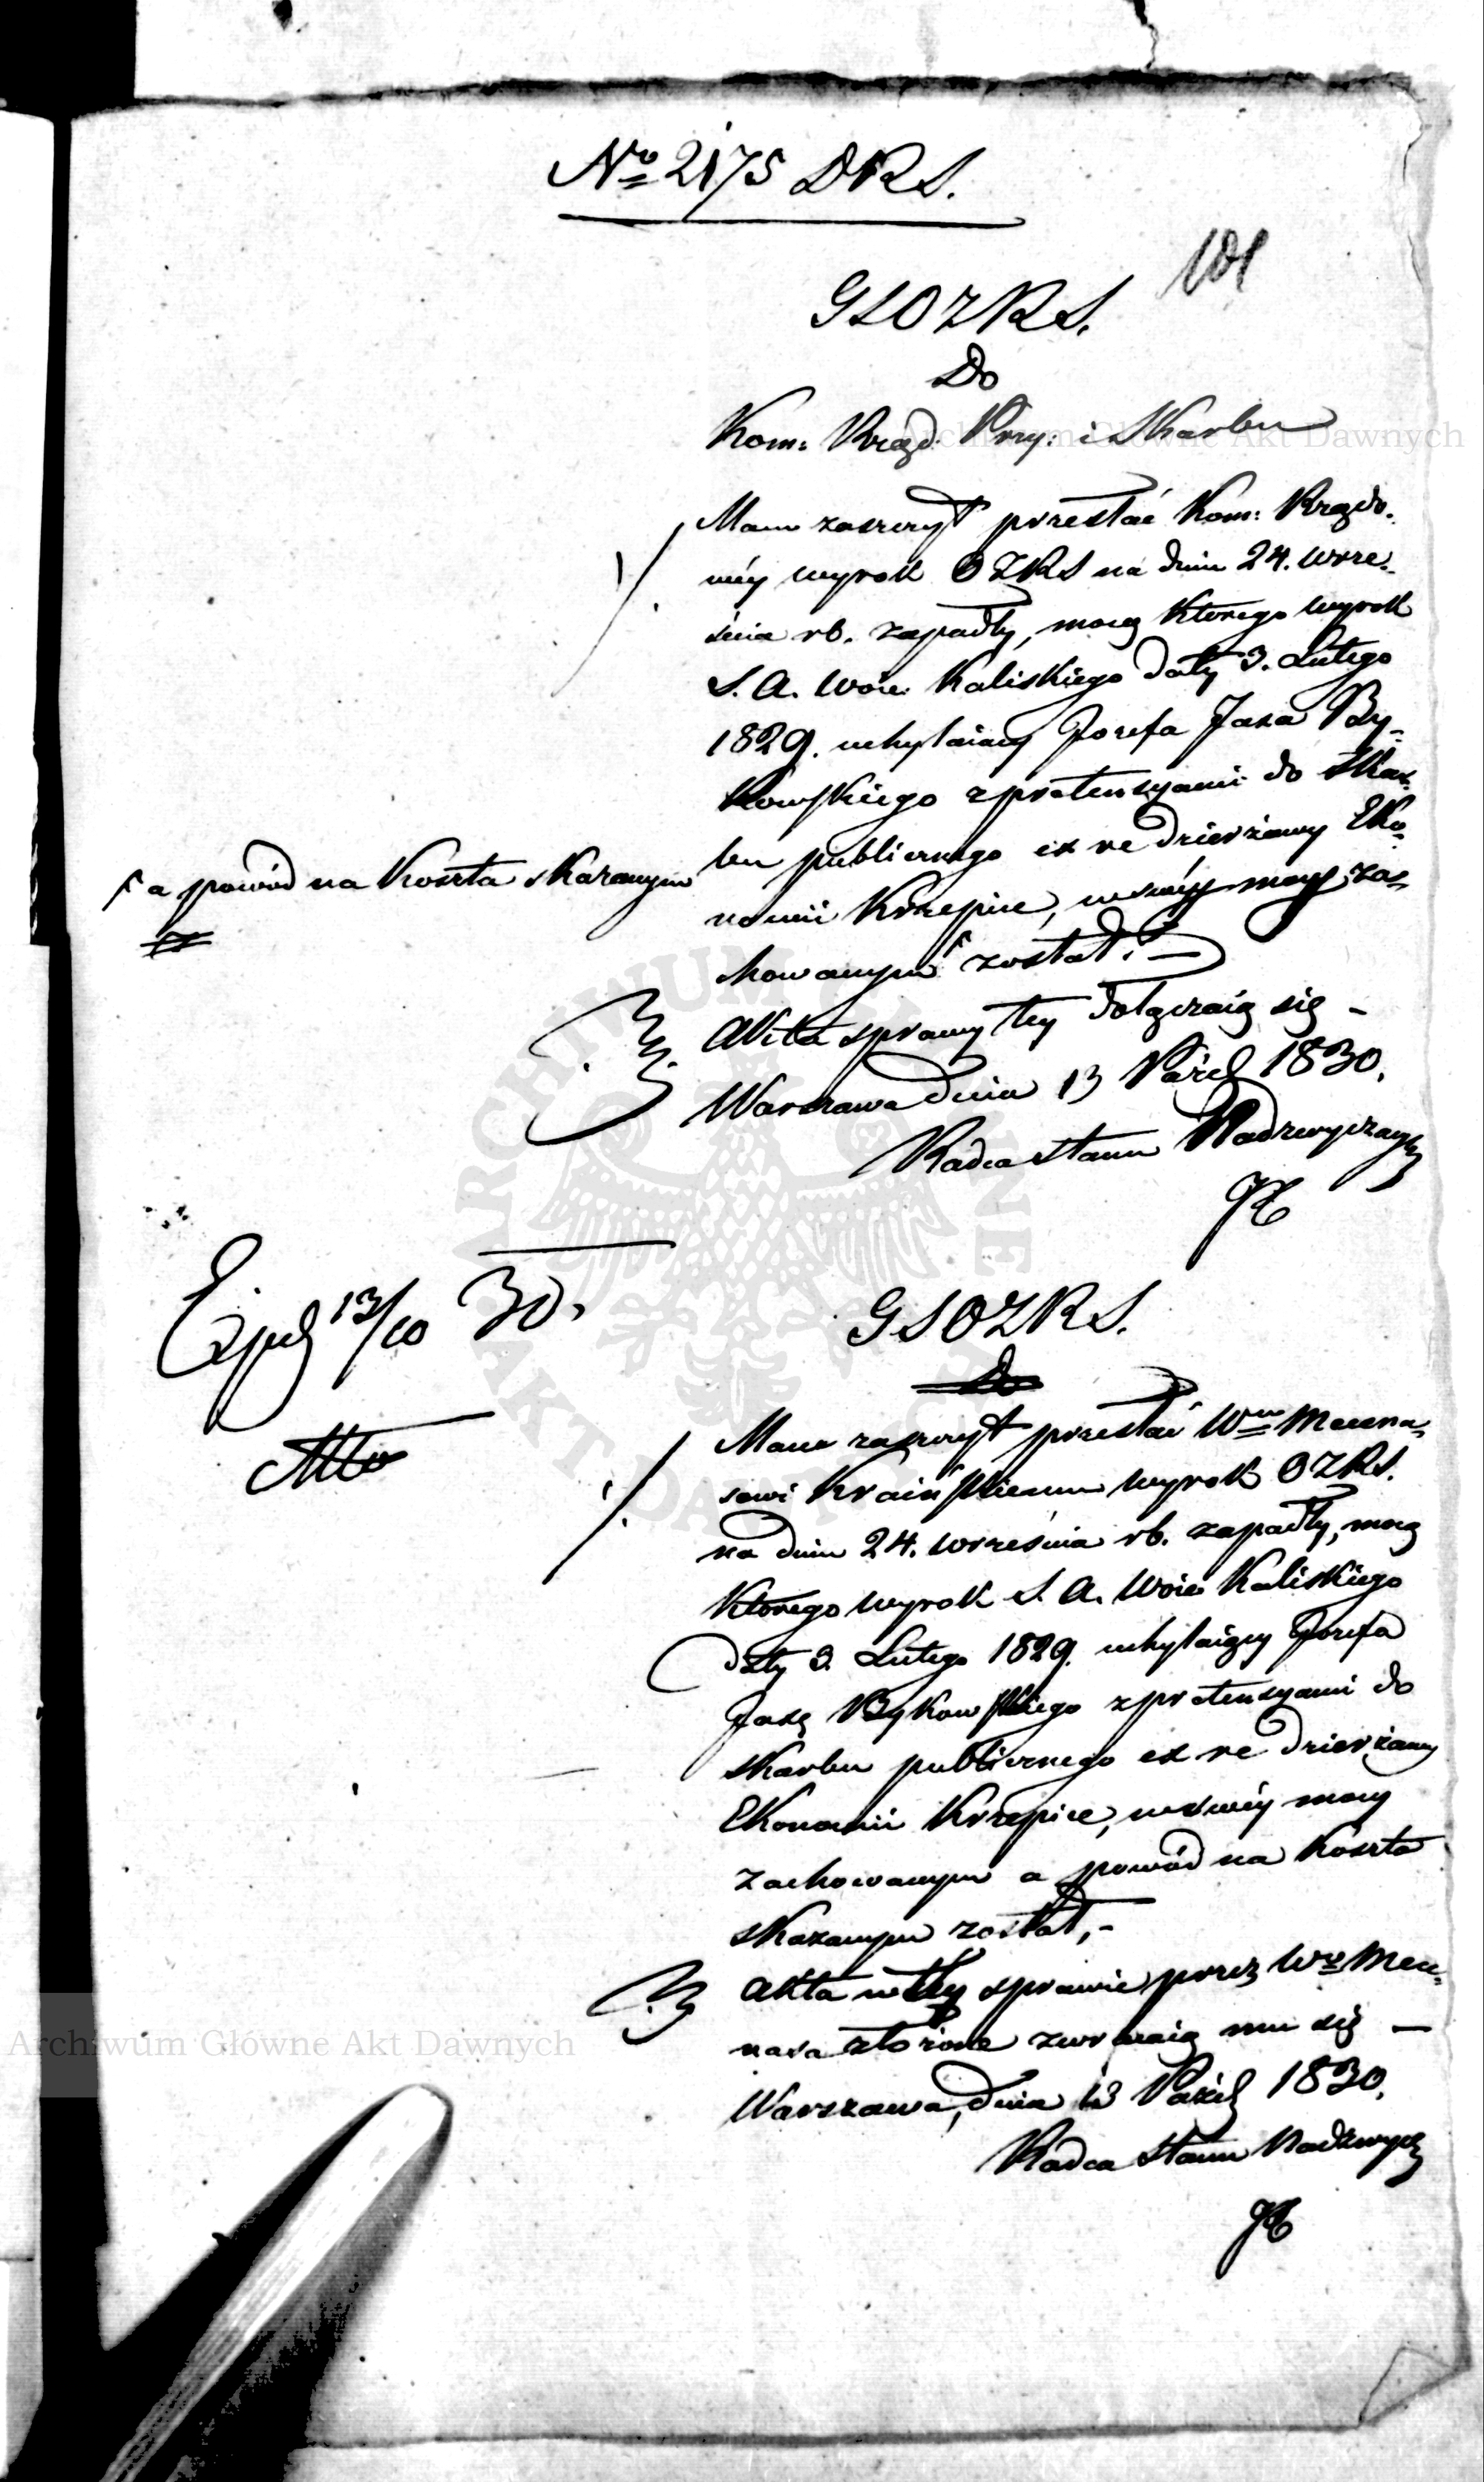 No 2175 DRS.
101
GSOZRS.
Do
Kom: Rząd: Przy: i Skarbu
Mam zaszczyt przesłać Kom: Rządo-
wéy wyrok OZRS na dniu 24. Wrze-
śnia rb. zapadły, mocą którego wyrok
S. A. Woie: Kaliskiego daty 3. Lutego
1829. uchylaiący Jozefa Jaxa By-
kowskiego z pretensyami do Skar-
bu publicznego ex re dzierżawy Eko-
nomii Krzepice, w swéy mocy za-
chowanym został.
a powód na koszta skazanym
Akta sprawy téy dołączaią się -
Warszawa dnia 13 Paźd 1830.
Radca Stanu Nadzwyczayny
Exped 13/10 30.
GSOZRS.
Do
Mam zaszczyt przesłać Wmu Mecena-
sowi Kraińskiemu wyrok OZRS.
na dniu 24. Września rb. zapadły, mocą
którego wyrok S. A. Woie Kaliskiego
daty 3. Lutego 1829. uchylaiący Jozefa
Jaxę Bykowskiego z pretensyami do
skarbu publicznego ex re dzierżawy
Ekonomii Krzepice, w swéy mocy
zachowanym a powód na koszta
skazanym został,-
Akta w téy sprawie przez Wo Mece-
nasa złożone zwracaią mu się —
Warszawa, dnia 13 Paźd 1830.
Radca Stanu Nadzwycz
Archiwum Główne Akt Dawnych